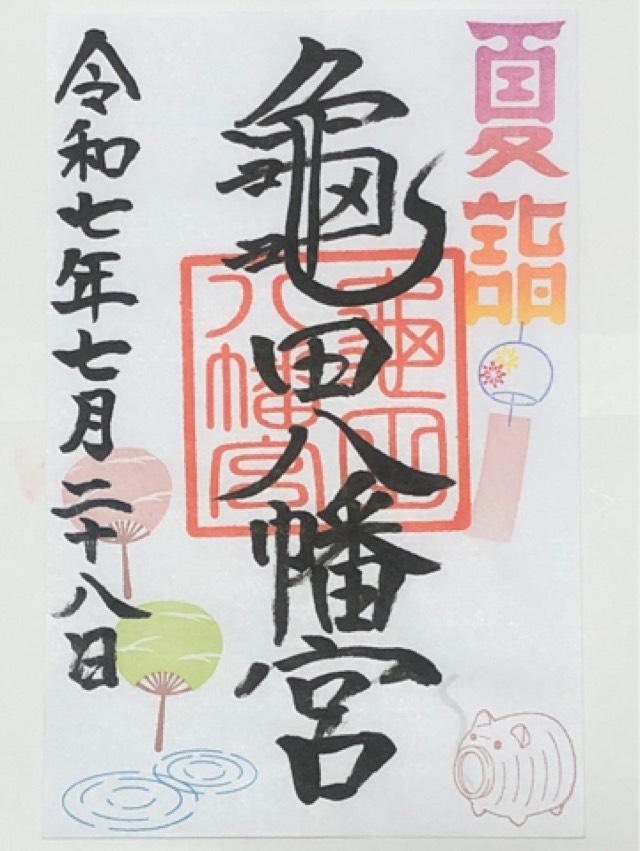 夏詣
龜田八幡宮
龜田
八幡宮
令和七年七月二十八日